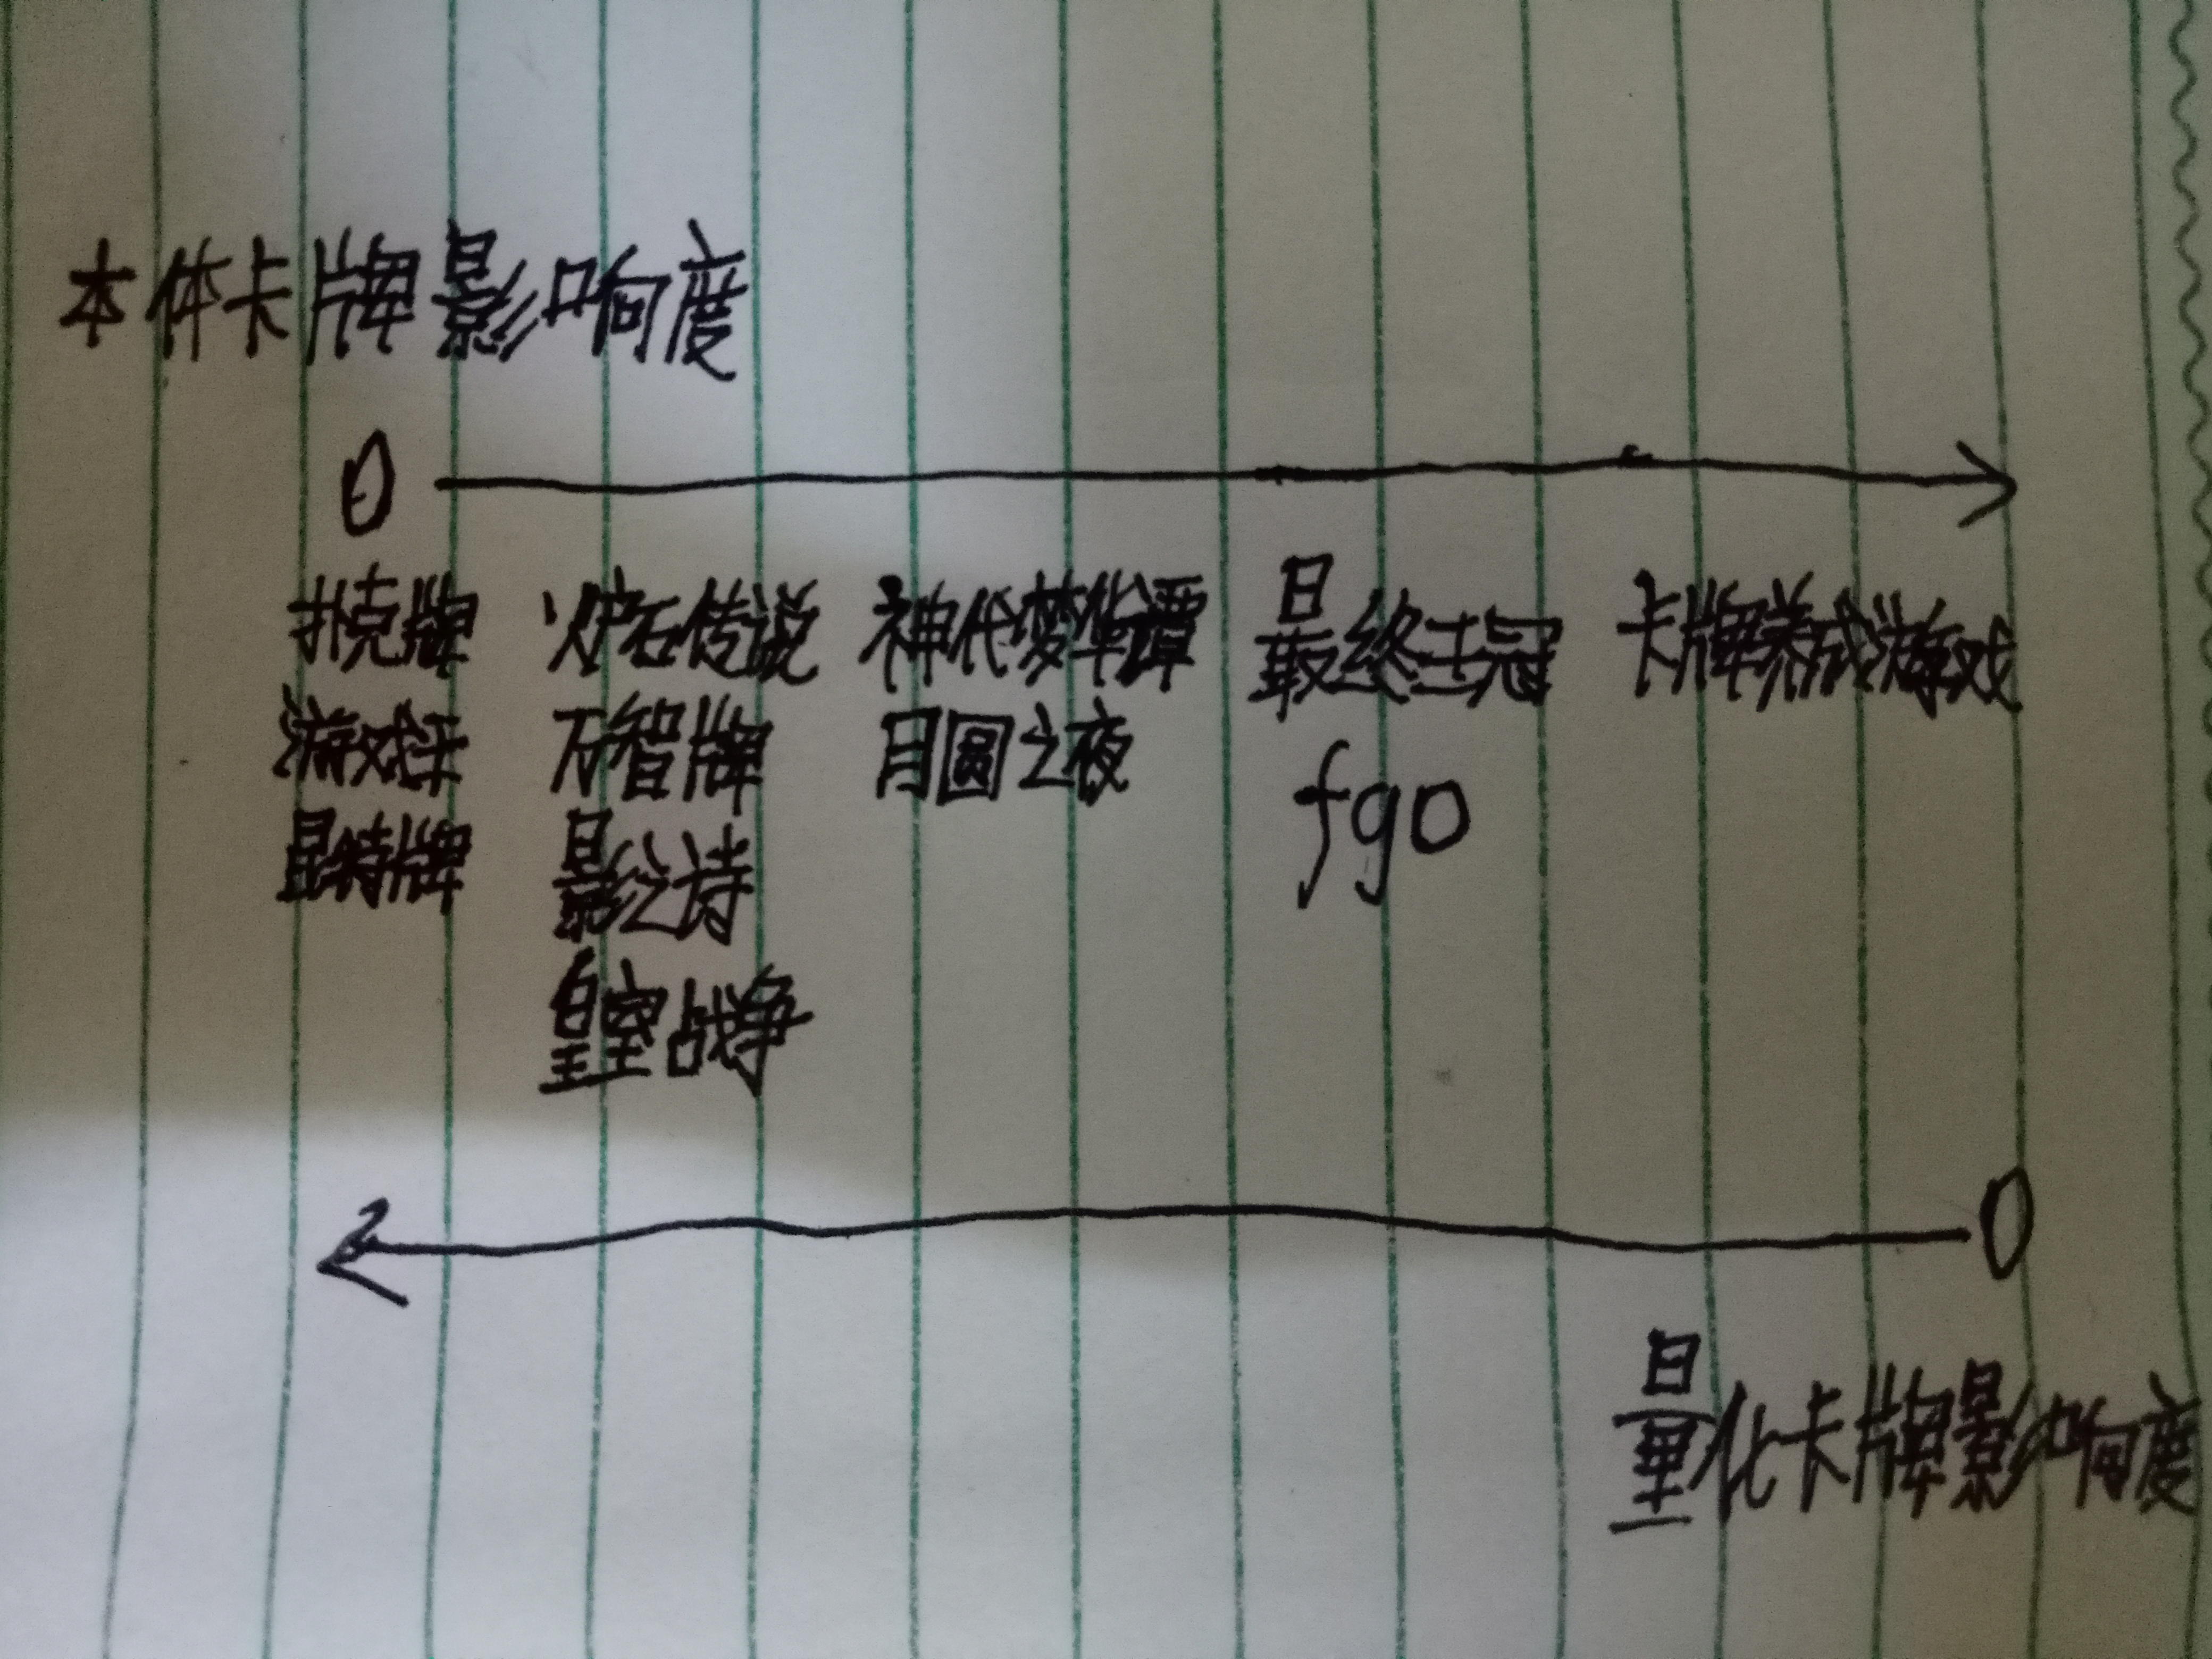 本体卡牌影响度
0
扑克牌 炉石传说 神代梦华谭 最终王冠 卡牌养成游戏
游戏王 万智牌 月圆之夜 fgo
昆特牌 影之诗
皇室战争
0
量化卡牌影响度